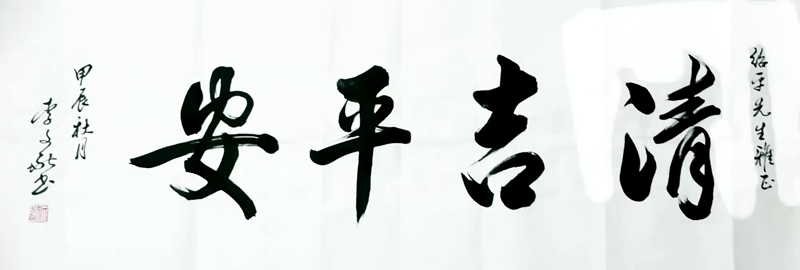 绍平先生雅正
清吉平安
甲辰秋月
李文
书